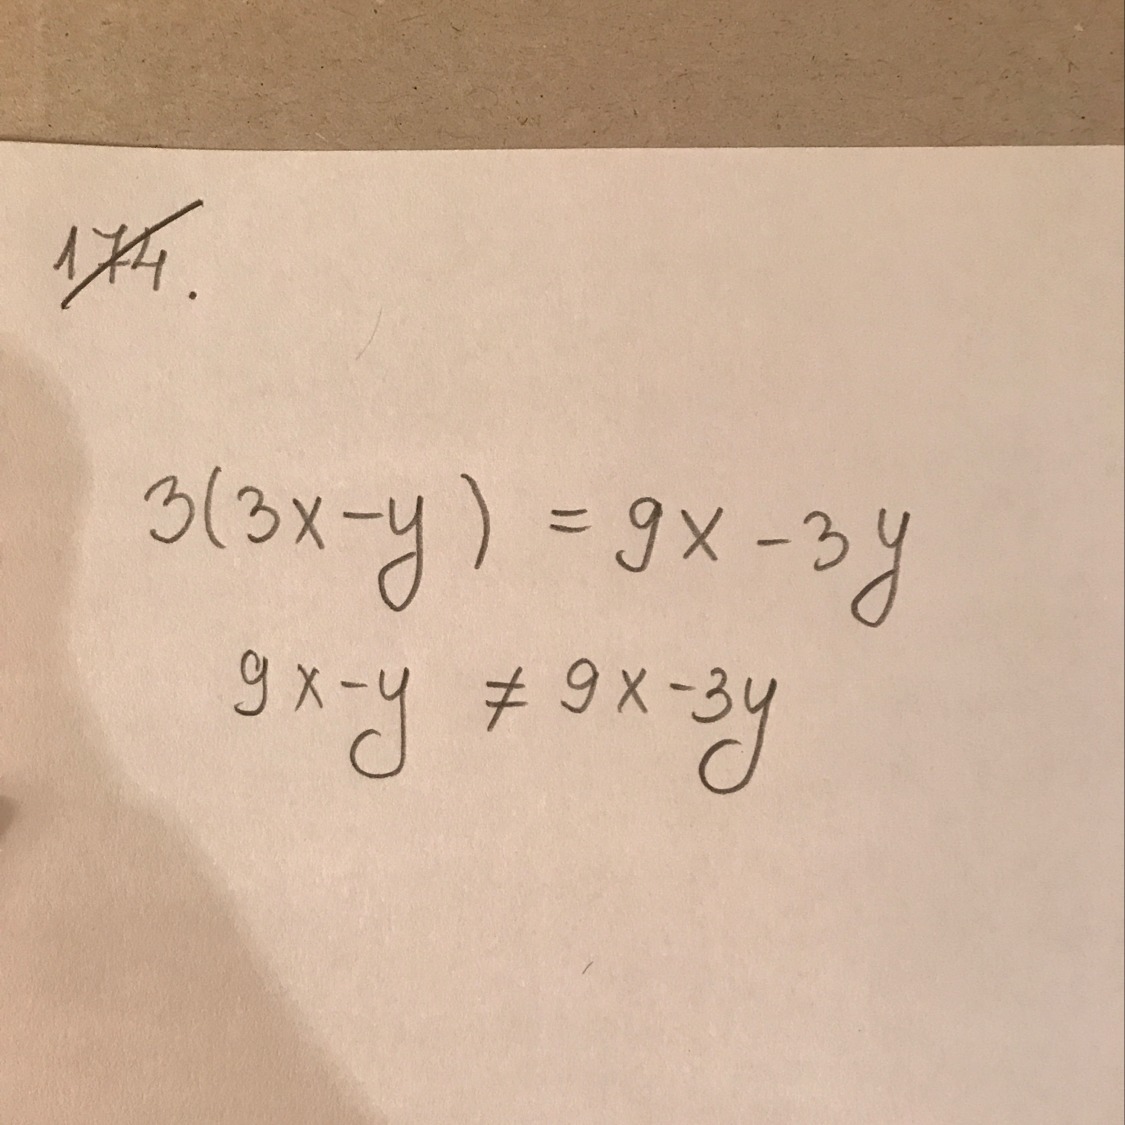 174.
3(3x-y) = 9x-3y
9x-y ≠ 9x-3y